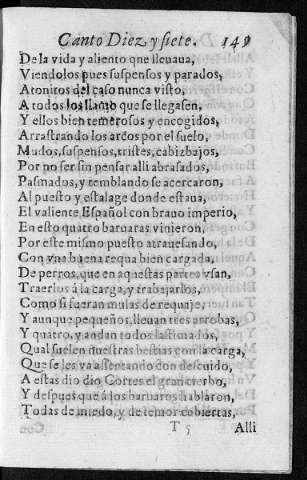 Canto Diez y siete. 149
De la vida y aliento que lleuaua,
Viendolos pues suspensos y parados,
Atonitos del caso nunca visto,
A todos los llamò que se llegasen,
Y ellos bien temerosos y encogidos,
Arrastrando los arcos por el suelo,
Mudos, suspensos, tristes, cabizbajos,
Por no ser sin pensar alli abrasados,
Pasmados, y temblando se acercaron,
Al puesto y estalage donde estaua,
El valiente Español con brauo imperio,
En esto quatro barbaras vinieron,
Por este mismo puesto atrauesando,
Con vna buena requa bien cargada,
De perros, que en aquestas partes vsan,
Traerlos á la carga, y trabajarlos,
Como si fueran mulas de requaje,
Y aunque pequeños, lleuan tres arrobas,
Y quatro, y andan todos lastimados,
Qual suelen nuestras bestias con la carga,
Que se les va assentando con descuido,
A estas dio dio Cortes el gran cierbo,
Y despues que á los barbaros hablaron,
Todas de miedo, y de temor cobiertas,
T 5 Alli